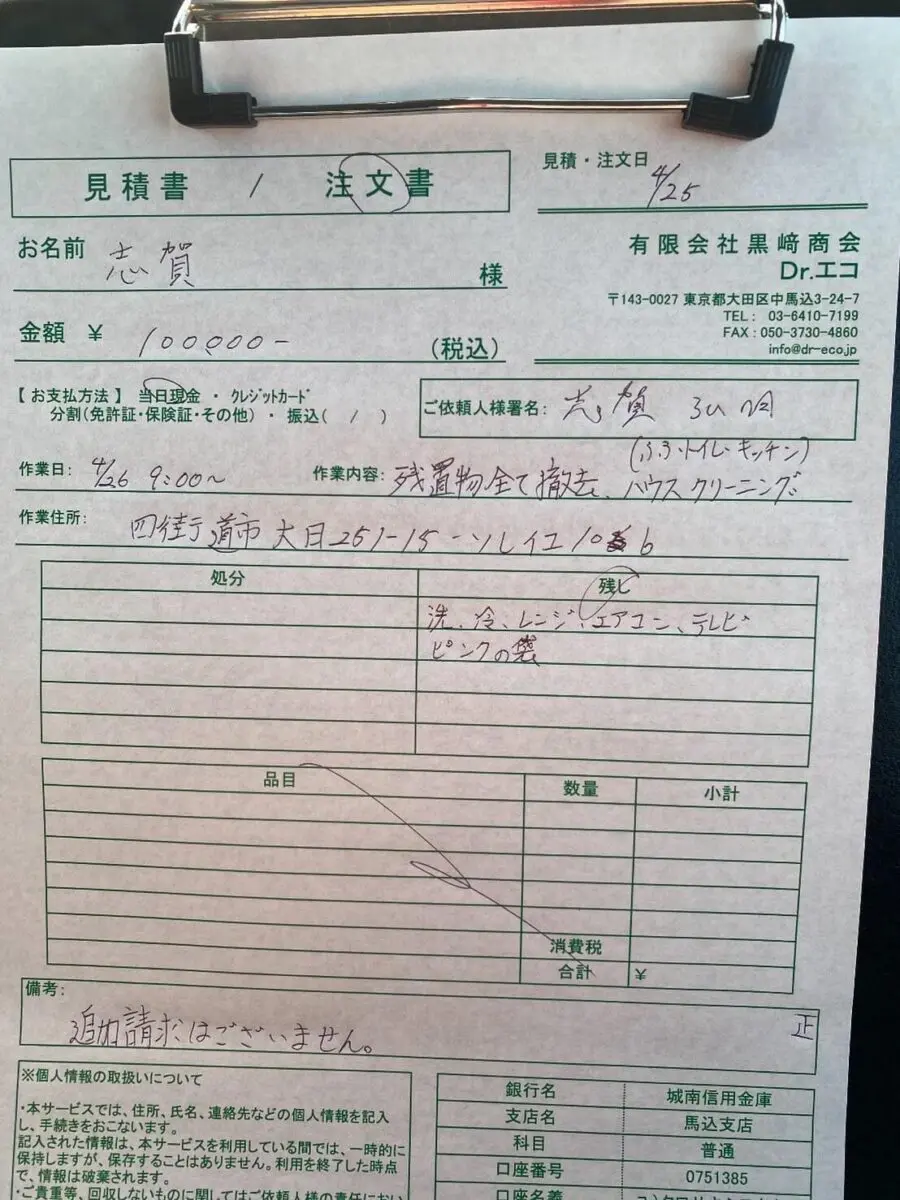 見積書 / 注文書
見積・注文日
4/25
お名前 志賀 様
有限会社黒﨑商会
Dr.エコ
〒143-0027 東京都大田区中馬込3-24-7
TEL: 03-6410-7199
FAX:050-3730-4860
info@dr-eco.jp
金額 ¥ 100,000- (税込)
【お支払方法】 当日現金 ・ クレジットカード
分割(免許証・保険証・その他)・ 振込( / )
ご依頼人様署名: 志賀
(ふろ・トイレ・キッチン)
作業日: 4/26 9:00~ 作業内容: 残置物全て撤去、ハウスクリーニング
作業住所: 四街道市大日251-15-ソレイユ10 6
処分 残し
洗、冷、レンジ、エアコン、テレビ
ピンクの袋
品目 数量 小計
消費税
合計 ¥
備考:
追加請求はございません。
正
※個人情報の取扱いについて
・本サービスでは、住所、氏名、連絡先などの個人情報を記入
し、手続きをおこないます。
記入された情報は、本サービスを利用している間では、一時的に
保持しますが、保存することはありません。利用を終了した時点
で、情報は破棄されます。
・ご貴重等、回収しないものに関してはご依頼人様の責任におい
銀行名 城南信用金庫
支店名 馬込支店
科目 普通
口座番号 0751385
口座名義